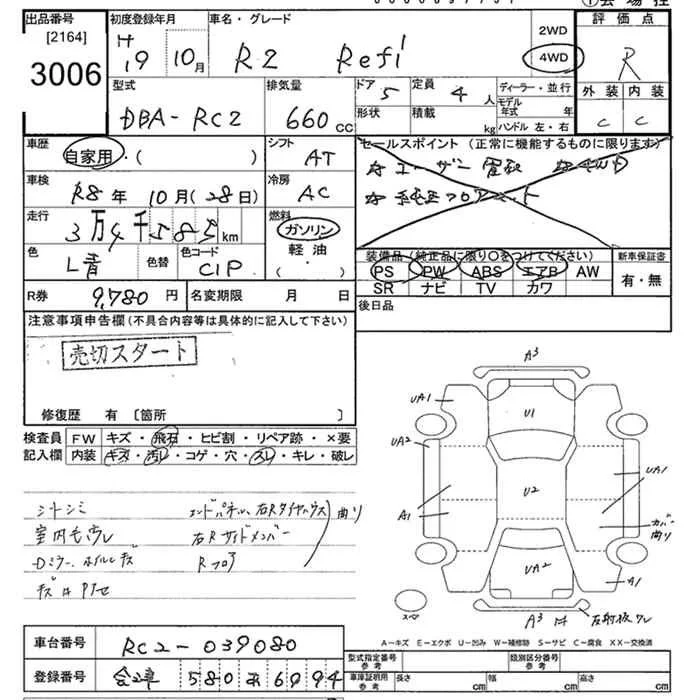 出品番号
[2164]
3006
初度登録年月
H19 10月
車名・グレード
R2 Refi
2WD
4WD
評価点
R
外装 内装
C C
型式
DBA-RC2
排気量
660 cc
ドア 5
定員 4 人
形状
積載 kg
ディーラー・並行
モデル年式 年
ハンドル 左・右
車歴
自家用・( )
シフト
AT
セールスポイント (正常に機能するものに限ります)
車検
R8年 10月 (28日)
冷房
AC
走行
3万4千585 km
燃料
ガソリン
軽油
・
( )
色
L青
色替
色コード
C1P
装備品 (純正品に限り〇をつけてください)
PS PW ABS エアB AW
SR ナビ TV カワ
新車保証書
有・無
R券
9,780 円
名変期限 月 日
後日品
注意事項申告欄 (不具合内容等は具体的に記入して下さい)
売切スタート
修復歴 有 〔箇所 〕
検査員記入欄
FW キズ・飛石・ヒビ割・リペア跡・×要
内装 キズ・汚レ・コゲ・穴・スレ・キレ・破レ
シートシミ
室内モケウレ
Dミラー、ホイルキズ
エンドパネル、右Rタイヤハウス
右Rサイドメンバー
Rフロア
曲り
A3
UA1
U1
UA2
U2
UA1
A1
カバー曲り
UA2
A1
スペア
A3
反射板ワレ
A-キズ E-エクボ U-凹み W-補修跡 S-サビ C-腐食 XX-交換済
車台番号
RC2-039080
登録番号
580 あ 6994
型式指定番号 参考
類別区分番号 参考
車庫証明用 参考
長さ cm
幅 cm
高さ cm